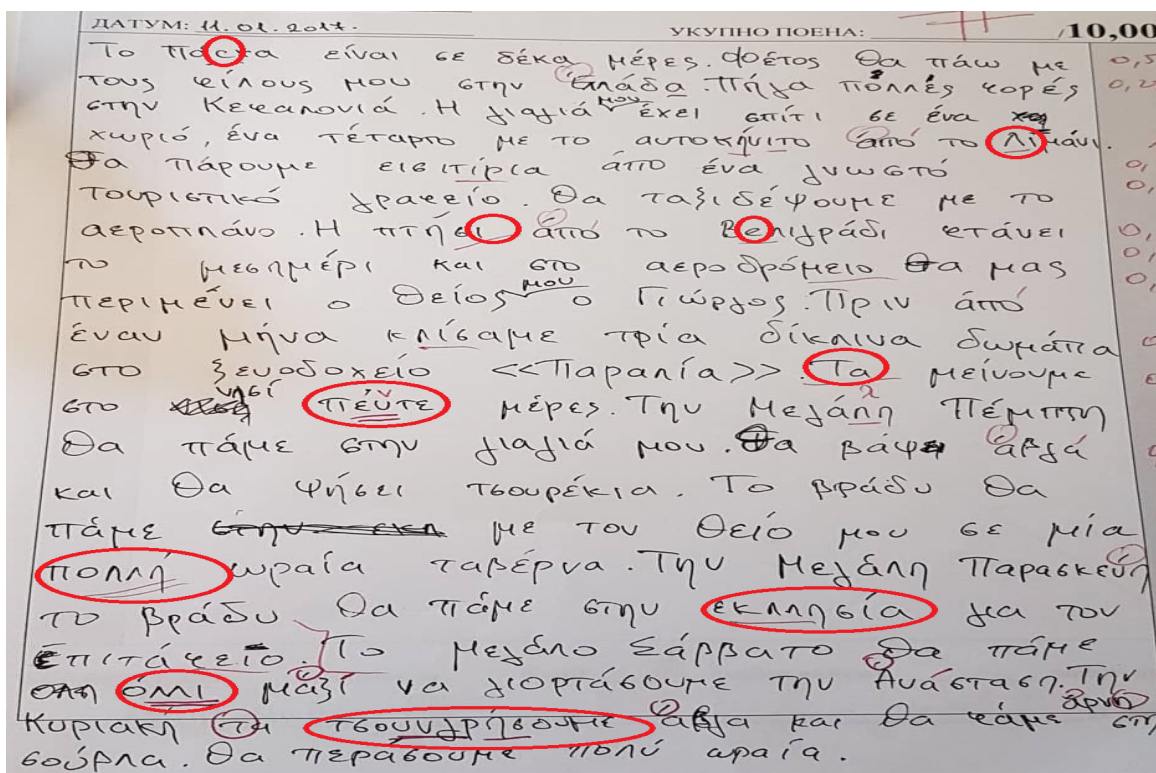 ДАТУМ: 11.01.2017. УКУПНО ПОЕНА: /10,00
Το Πάσcα είναι σε δέκα μέρες. Φέτος θα πάω με
τους φίλους μου στην Ελλάδα. Πήγα πολλές φορές
στην Κεφαλονιά. Η γιαγιά μου έχει σπίτι σε ένα
χωριό, ένα τέταρτο με το αυτοκήνιτο άπό το Λιμάνι.
Θα πάρουμε εισιτίρια άπο ένα γνωστό
τουριστικό γραφείο. Θα ταξιδέψουμε με το
αεροπλάνο. Η πτήσι άπό το Βελιγράδι φτάνει
το μεσημέρι και στο αεροδρόμειο θα μας
περιμένει ο θείος μου ο Γιώργος. Πριν άπό
έναν μήνα κλίσαμε τρία δίκλινα δωμάτια
στο ξενοδοχείο <<Παραλία>>. Τα μείνουμε
στο νησί πέντε μέρες. Την Μεγάλη Πέμπτη
θα πάμε στην γιαγιά μου. Θα βάψει άβγά
και θα ψήσει τσουρέκια. Το βράδυ θα
πάμε με τον θείο μου σε μία
πολλή ωραία ταβέρνα. Την Μεγάλη Παρασκευή
το βράδυ θα πάμε στην εκλλησία για τον
Επιτάφειο. Το Μεγάλο Σάββατο θα πάμε
όλλι μαζί να γιορτάσουμε την Ανάσταση. Την
Κυριακή τα τσουνγρήσουμε άβγα και θα φάμε άρνι στη
σούβλα. Θα περάσουμε πολύ ωραία.